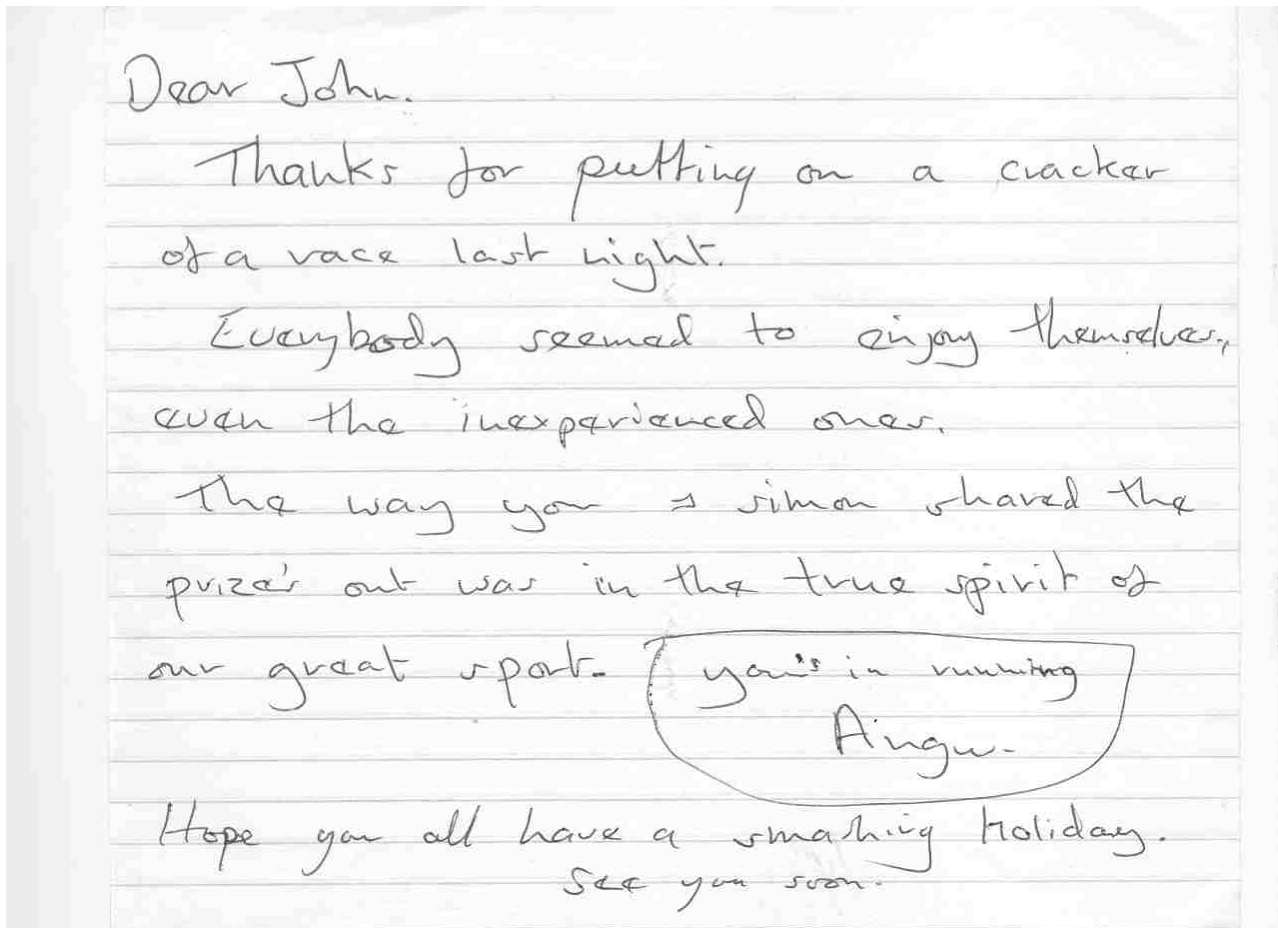 Dear John.
Thanks for putting on a cracker
of a race last night.
Everybody seemed to enjoy themselves,
even the inexperienced ones.
The way you & simon shared the
prize's out was in the true spirit of
our great sport.
you's in running
Hope you all have a smashing Holiday.
See you soon.